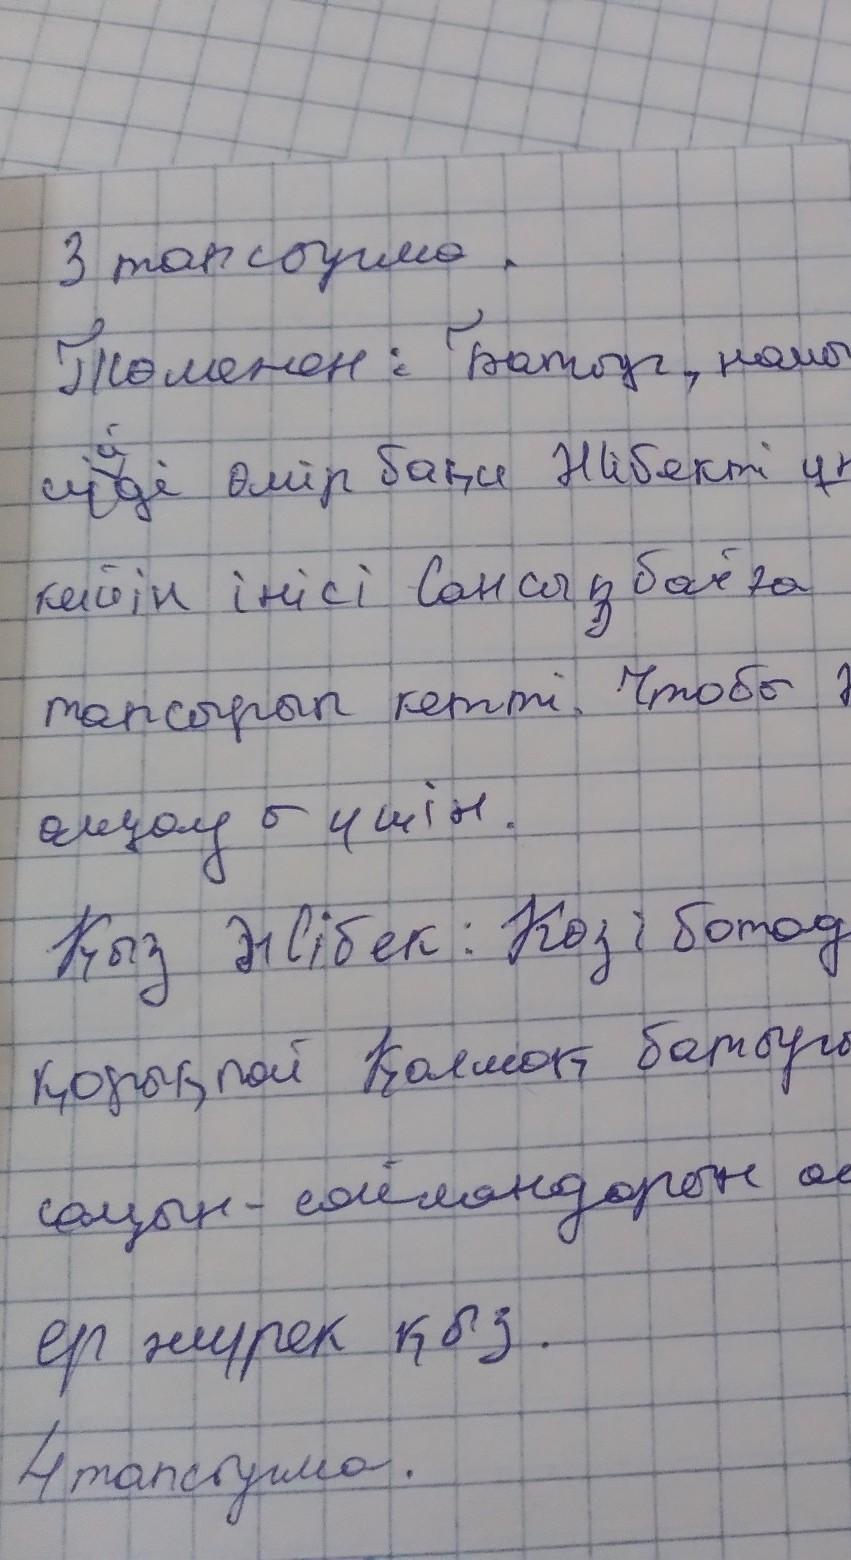 3 тапсырма.
Төлеген: Батыр, намы
сүйді өмір бақи Жібекті үн
кейін інісі Сансызбайға
тапсырып кетті. Чтобы
алқалы үшін.
Қыз Жібек: Көзі ботад
қорықпай Қалмақ батыры
сақын-саймандарын ал
ер жүрек қыз.
4 тапсырма.